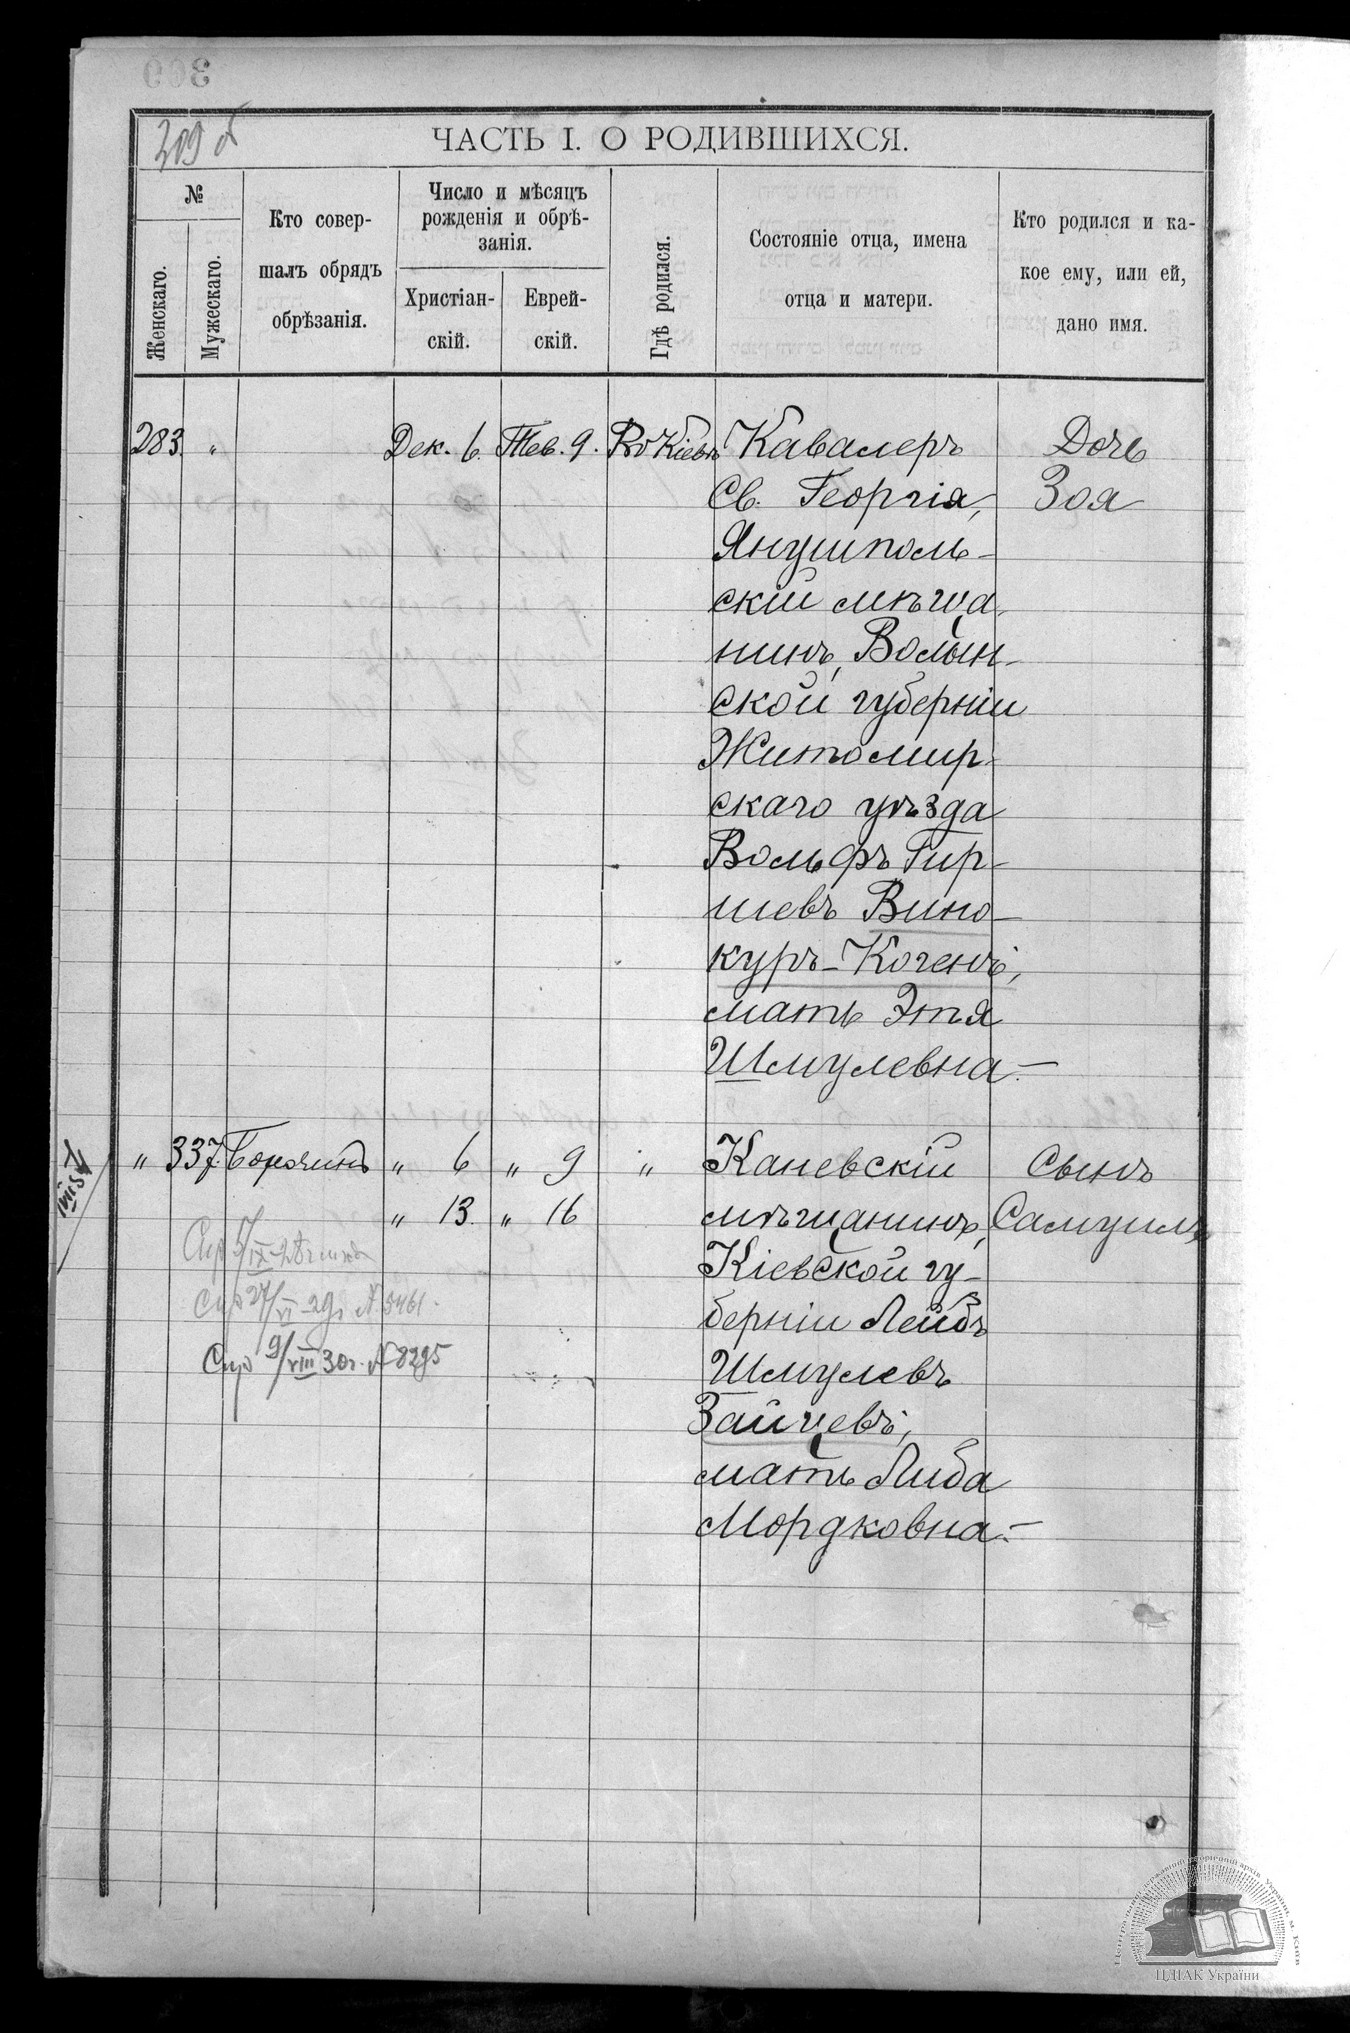 309 б
ЧАСТЬ I. О РОДИВШИХСЯ.
№
Женскаго.
Мужескаго.
Кто совер-
шалъ обрядъ
обрѣзанія.
Число и мѣсяцъ
рожденія и обрѣ-
занія.
Христіан-
скій.
Еврей-
скій.
Гдѣ родился.
Состояніе отца, имена
отца и матери.
Кто родился и ка-
кое ему, или ей,
дано имя.
283. " Дек. 6. Тев. 9. Въ Кіевѣ Кавалеръ Дочь
Св. Георгія, Зоя
Янушполь-
скій мѣща-
нинъ, Волын-
ской губерніи
Житомир-
скаго уѣзда
Вольфъ Гир-
шевъ Вино-
куръ-Когенъ,
мать Этя
Шмулевна.-
" 337. " 6 " 9 " Каневскій Сынъ
" 13. " 16 мѣщанинъ, Самуилъ
Кіевской гу-
берніи Лейбъ
Шмулевъ
Зайцевъ,
мать Либа
Мордковна.-
Спр 27/VI 29г №5461.
Спр 9/VIII 30г. №8295
ЦДІАК України